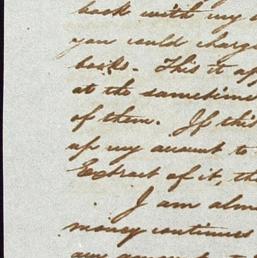 back with my
you could charge
books. This it
at the sametime
of them. If this
up my account to
Extract of it, the
I am
money continues